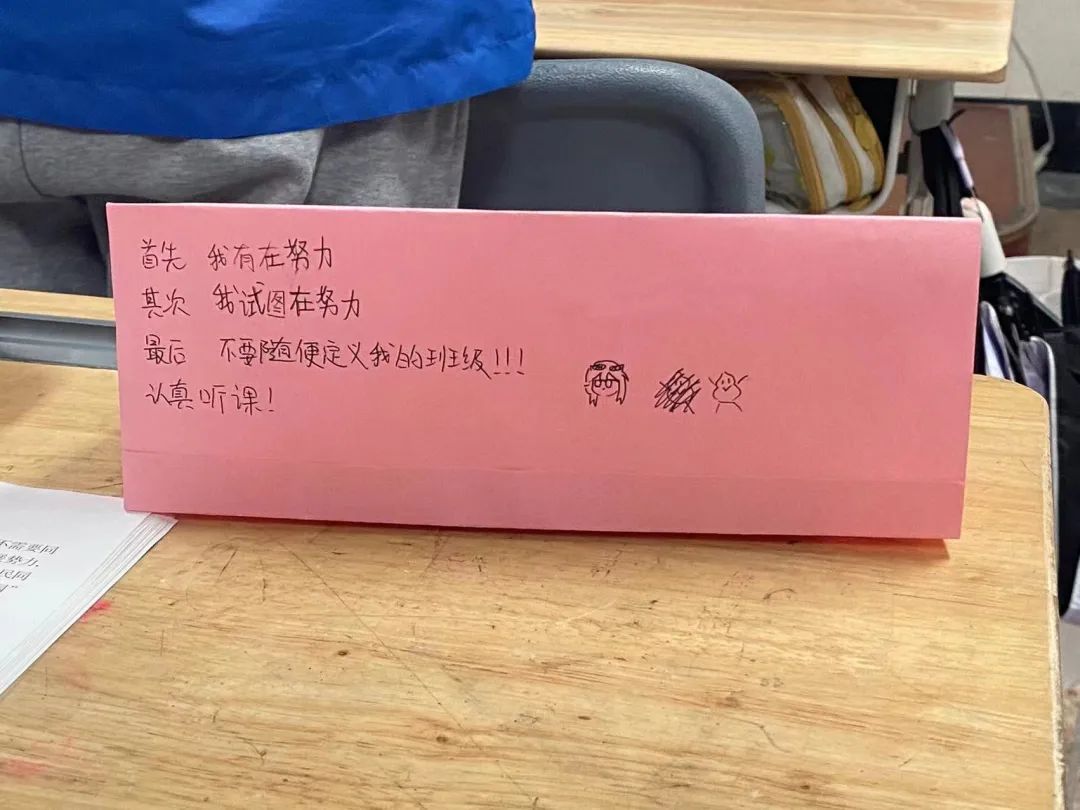 首先 我有在努力
其次 我试图在努力
最后 不要随便定义我的班级!!!
认真听课!
不需要同
势力,
民同